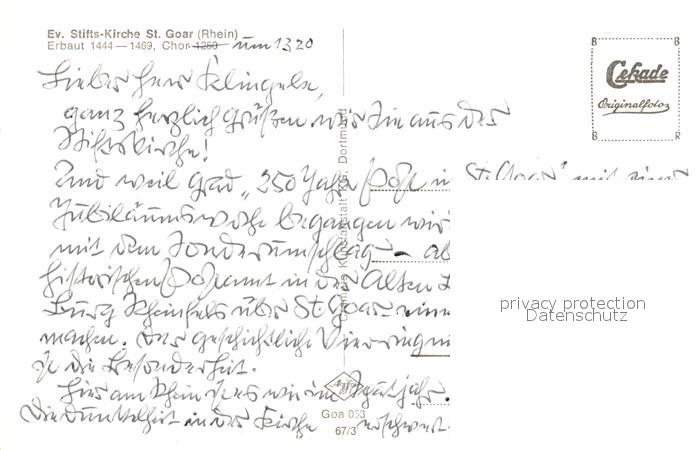 Ev. Stifts-Kirche St. Goar (Rhein)
Erbaut 1444—1469, Chor 1250 um 1320
Lieber Herr Klingele,
ganz herzlich grüßen wir Sie aus der
Stiftskirche!
Und weil grad „250 Jahre Post in St. Goar" mit einer
Jubiläumswoche begangen wird
mit dem Sonderumschlag –
historischen Postamt in der Alten
Burg Rheinfels über St. Goar
machen. Das geschichtliche
ist die Besonderheit.
Hier am Rhein ist es wie im
Die Dunkelheit in der Kirche erschwert
Kunstanstalt K.G. Dortmund
Agfa
Goa 053
67/3
B B
Cekade
Originalfoto
B R
privacy protection
Datenschutz